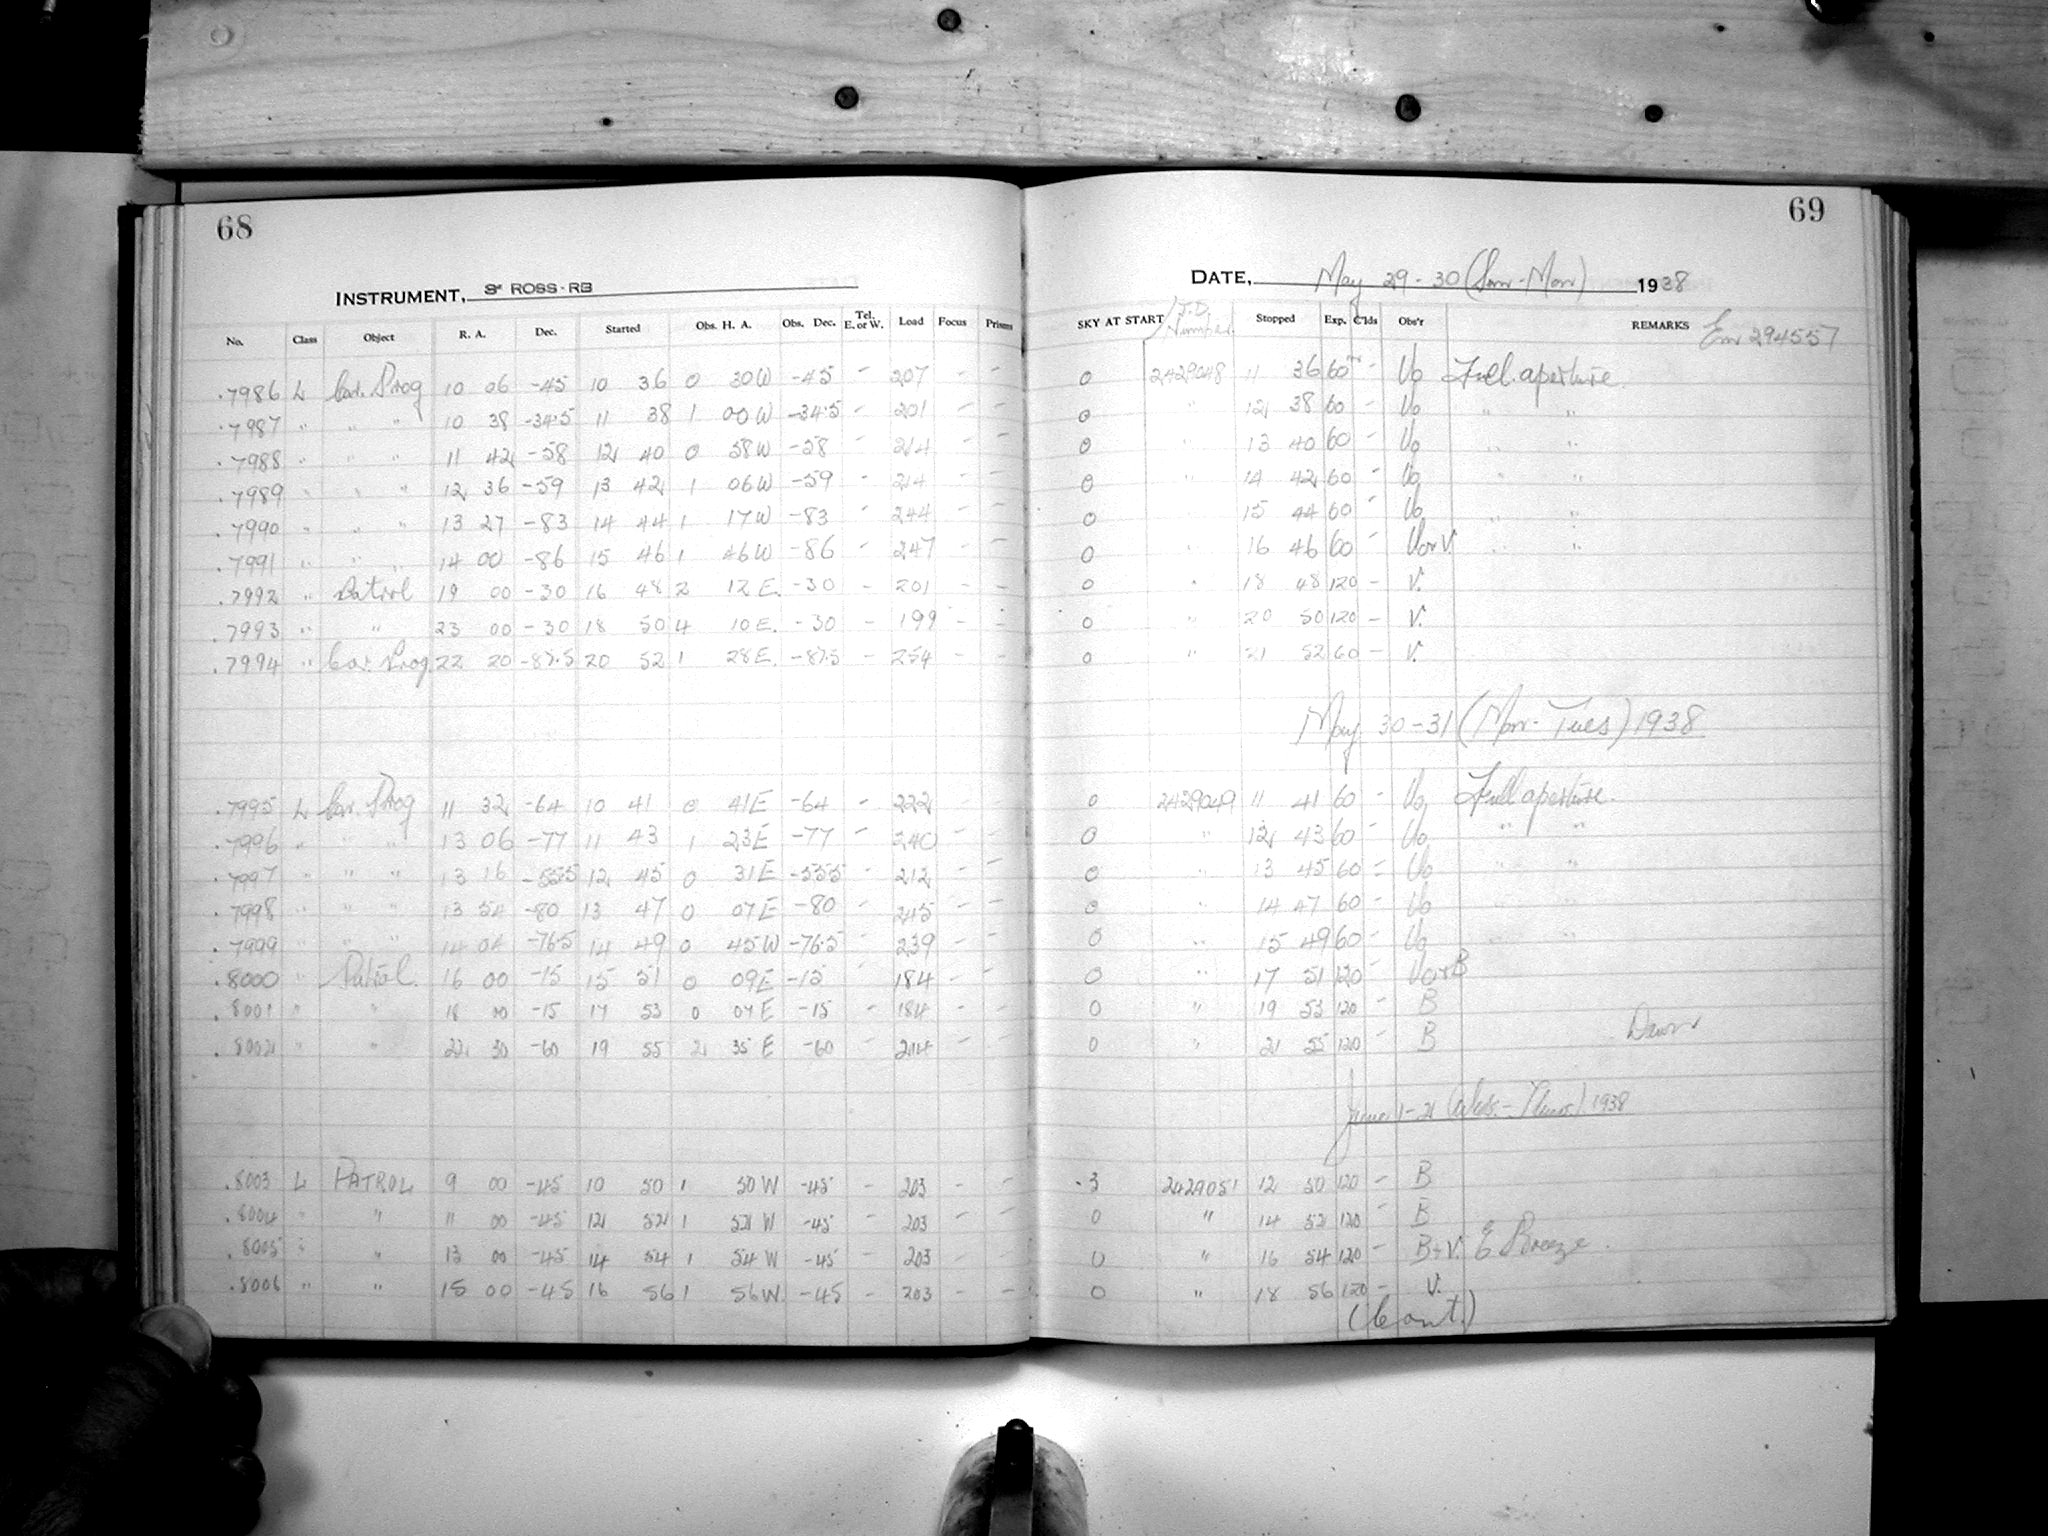 68
INSTRUMENT, 3" ROSS-RB
No. Class Object R. A. Dec. Started Obs. H. A. Obs. Dec. Tel. E. or W. Load Focus Prisms
.7986 L Car. Prog 10 06 -45 10 36 0 30W -45 - 207 - -
.7987 " " " 10 38 -34.5 11 38 1 00W -34.5 - 201 - -
.7988 " " " 11 42 -58 12 40 0 58W -58 - 214 - -
.7989 " " " 12 36 -59 13 42 1 06W -59 - 214 - -
.7990 " " " 13 27 -83 14 44 1 17W -83 - 244 - -
.7991 " " " 14 00 -86 15 46 1 46W -86 - 247 - -
.7992 " Patrol 19 00 -30 16 48 2 12E. -30 - 201 - -
.7993 " " 23 00 -30 18 50 4 10E. -30 - 199 - -
.7994 " Car. Prog. 22 20 -87.5 20 52 1 28E. -87.5 - 254 - -
.7995 L Car. Prog 11 32 -64 10 41 0 41E -64 - 222 - -
.7996 " " " 13 06 -77 11 43 1 23E -77 - 240 - -
.7997 " " " 13 16 -55.5 12 45 0 31E -55.5 - 212 - -
.7998 " " " 13 54 -80 13 47 0 07E -80 - 245 - -
.7999 " " " 14 04 -76.5 14 49 0 45W -76.5 - 239 - -
.8000 " Patrol. 16 00 -15 15 51 0 09E -15 - 184 - -
.8001 " " 18 00 -15 17 53 0 07E -15 - 184 - -
.8002 " " 22 30 -60 19 55 2 35E -60 - 214 - -
.8003 L PATROL 9 00 -45 10 50 1 50W -45 - 203 - -
.8004 " " 11 00 -45 12 52 1 52W -45 - 203 - -
.8005 " " 13 00 -45 14 54 1 54W -45 - 203 - -
.8006 " " 15 00 -45 16 56 1 56W. -45 - 203 - -
69
DATE, May 29-30 (Sun-Mon) 1938
SKY AT START J.D. Number. Stopped Exp. C'lds Obs'r REMARKS 294557
0 2429048 11 36 60m - Uo Full aperture.
0 " 12 38 60 - Uo " "
0 " 13 40 60 - Uo " "
0 " 14 42 60 - Uo " "
0 15 44 60 - Uo " "
0 " 16 46 60 - Uo+V. " "
0 " 18 48 120 - V.
0 " 20 50 120 - V.
0 " 21 52 60 - V.
May 30-31 (Mon-Tues) 1938
0 2429049 11 41 60 - Uo Full aperture.
0 " 12 43 60 - Uo " "
0 " 13 45 60 - Uo " "
0 " 14 47 60 - Uo " "
0 " 15 49 60 - Uo " "
0 " 17 51 120 - Uo+B
0 " 19 53 120 - B
0 " 21 55 120 - B Dawn
June 1-2 (Weds.-Thurs) 1938
-3 2429051 12 50 120 - B
0 " 14 52 120 - B
0 " 16 54 120 - B+V. E Breeze.
0 " 18 56 120 - V.
(Cont.)